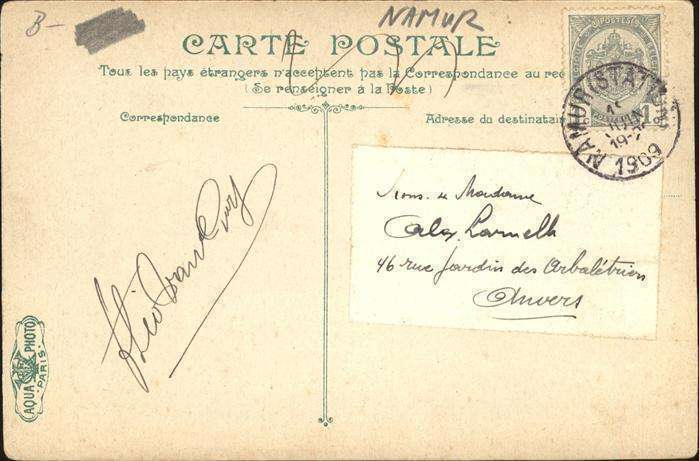 B-
NAMUR
CARTE POSTALE
Tous les pays étrangers n'acceptent pas la Correspondance au rec
(Se renseigner à la Poste)
Correspondance
Adresse du destinatair
NAMUR (STATION)
JUIN
19-
1909
Mons. & Madame
Alex.
46 rue Jardin des Arbalétriers
Anvers
AQUA PHOTO
PARIS